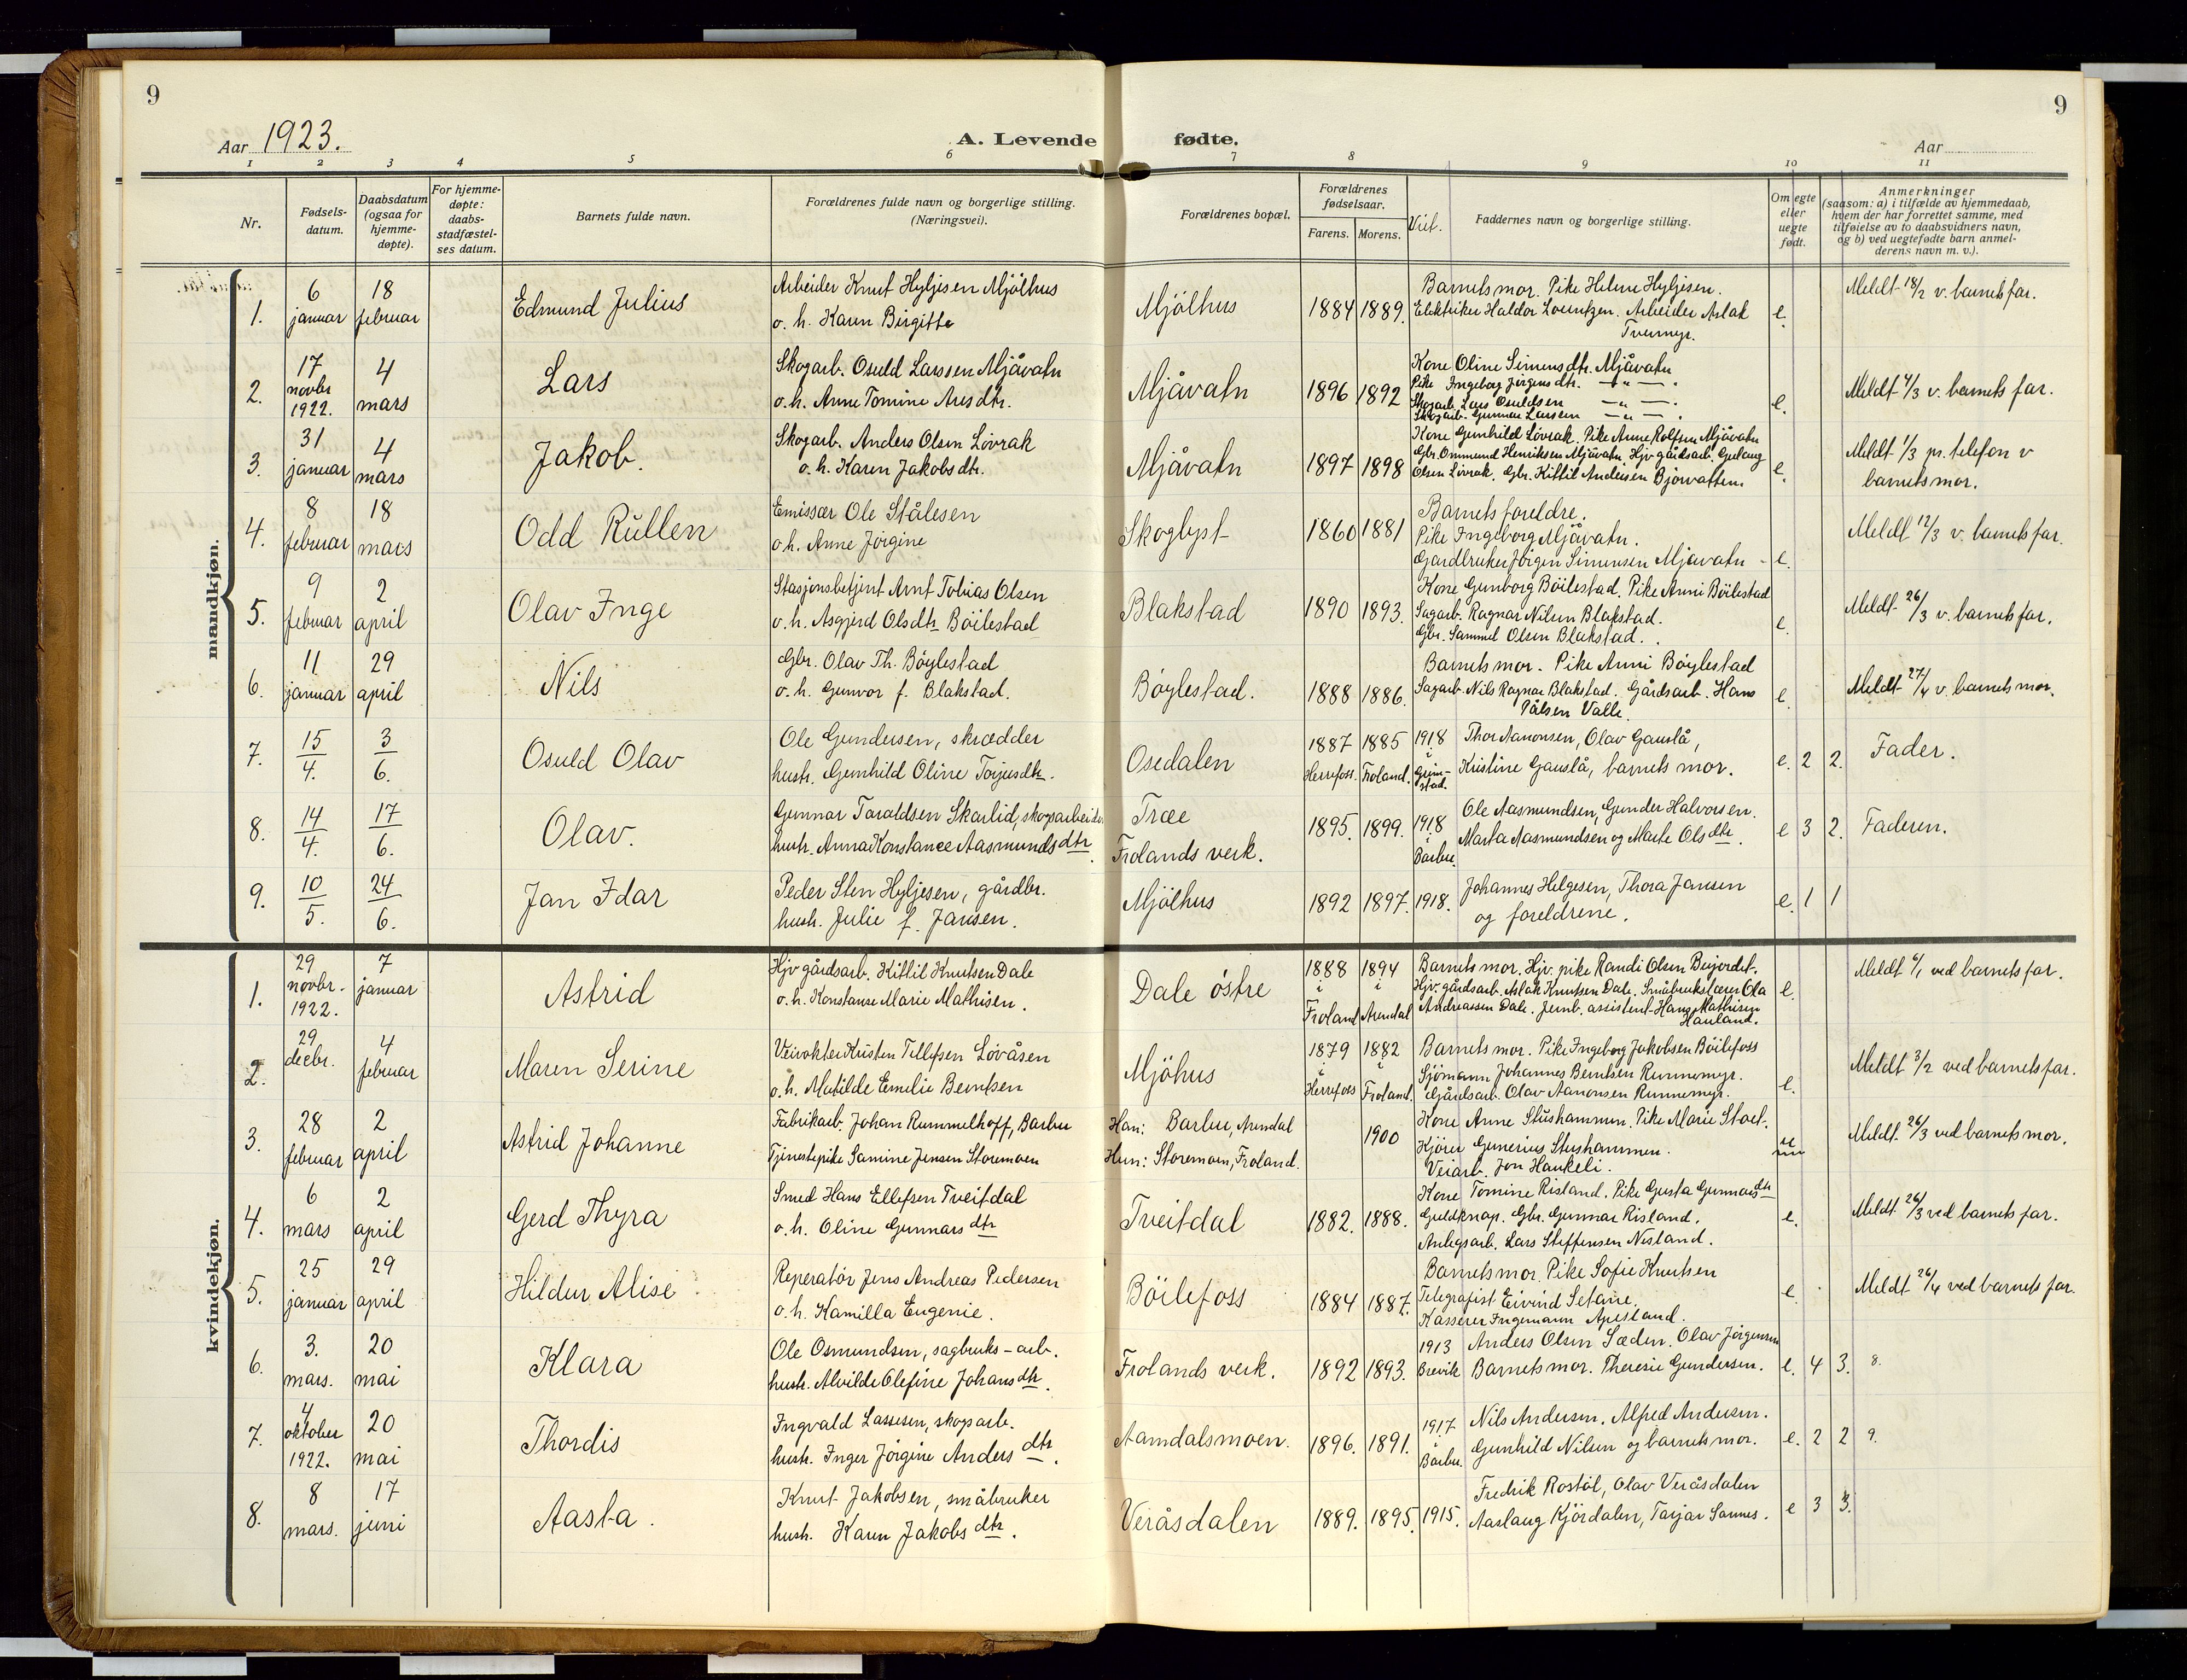 9
9
Aar 1923.
A. Levende fødte.
Aar
1 2 3 4 5 6 7 8 9 10 11
Nr.
Fødselsdatum.
Daabsdatum (ogsaa for hjemmedøpte).
For hjemmedøpte: daabsstadfæstelses datum.
Barnets fulde navn.
Forældrenes fulde navn og borgerlige stilling. (Næringsvei).
Forældrenes bopæl.
Forældrenes fødselsaar.
Farens. Morens.
Viet.
Faddernes navn og borgerlige stilling.
Om egte eller uegte født.
Anmerkninger (saasom: a) i tilfælde av hjemmedaab, hvem der har forrettet samme, med tilføielse av to daabsvidners navn, og b) ved uegtefødte barn anmelderens navn m. v.).
mandkjøn.
1. 6 januar 18 februar Edmund Julius
Arbeider Knut Hyljesen Mjölhus
o. h. Karen Birgitte
Mjölhus 1884 1889.
Barnets mor. Pike Helene Hyljesen.
Elektriker Haldor Lorentzen. Arbeider Aslak
Tvermyr.
e.
Meldt 18/2 v. barnets far.
2. 17 novbr 1922. 4 mars Lars
Skogarb. Osuld Larssen Mjåvatn
o. h. Anne Tomine Aresdtr.
Mjåvatn 1896 1892
Kone Oline Simensdtr. Mjåvatn
Pike Ingeborg Jörgensdtr. — " — .
Skogarb. Lars Osuldsen — " — .
Skogarb. Gunnar Larsen — " — .
e.
Meldt 4/3 v. barnets far.
3. 31 januar 4 mars Jakob.
Skogarb. Anders Olsen Lövrak
o. h. Karen Jakobsdtr.
Mjåvatn 1897 1898
Kone Gunhild Lövrak. Pike Anne Rolfsen Mjåvatn
Gbr. Ommund Henriksen Mjåvatn Hjv gårdsarb. Gutaug
Olsen Lövrak. Gbr. Kittil Andersen Bjorvatten.
e.
Meldt 1/3 pr. telefon v
barnets mor.
4. 8 februar 18 mars Odd Rullen
Emissær Ole Stålesen
o h. Anne Jörgine
Skoglyst 1860 1881
Barnets foreldre.
Pike Ingeborg Mjåvatn.
Gardbruker Jörgen Simensen Mjåvatn -
e.
Meldt 12/3 v. barnets far.
5. 9 februar 2 april Olav Inge
Stasjonsbetjent Arnt Tobias Olsen
o. h. Asgjerd Olsdtr Böilestad
Blakstad 1890 1893.
Kone Gunborg Böilestad. Pike Anni Böilestad
Sagarb. Ragnar Nilsen Blakstad.
Gbr. Sammel Olsen Blakstad.
e.
Meldt 26/3 v. barnets far.
6. 11 januar 29 april Nils
Gbr. Olav Th. Böylestad
o. h. Gunvor f. Blakstad.
Böylestad. 1888 1886.
Barnets mor. Pike Anni Böylestad
Sagarb. Nils Ragnar Blakstad. Gårdsarb. Hans
Pålsen Valle.
e
Meldt 27/4 v. barnets mor.
7. 15/4. 3/6. Osuld Olav
Ole Gundersen, skrædder
hustr. Gunhild Oline Torjusdtr.
Osedalen 1887 Herrefoss. 1885 Froland. 1918 i Grimstad.
Thor Aanonsen, Olav Gauslå,
Kristine Gauslå, barnets mor.
e. 2 2. Fader.
8. 14/4. 17/6. Olav.
Gunnar Taraldsen Skarlid, skogsarbeider
hustr. Anna Konstance Aasmundsdtr.
Træe
Frolands verk. 1895. 1899. 1918 i Barbu.
Ole Aasmundsen, Gunder Halvorsen.
Marta Aasmundsen og Marte Olsdtr.
e 3 2. Faderen.
9. 10/5. 24/6. Jan Idar
Peder Sten Hyljesen, gårdbr.
hustr. Julie f. Jansen.
Mjölhus 1892 1897. 1918.
Johannes Helgesen, Thora Jansen
og foreldrene.
e. 1 1
kvindekjøn.
1. 29 novbr. 1922. 7 januar Astrid
Hjv gårdsarb. Kittil Knutsen Dale
o. h. Konstanse Marie Mathisen.
Dale östre 1888 i Froland 1894 i Arendal
Barnets mor. Hjv. pike Randi Olsen Beijordet.
Hjv. gårdsarb. Aslak Knutsen Dale. Småbrukslærer Ola
Andreassen Dale. Jernb. assistent Hans Mathisen
Hauland.
e.
Meldt 6/1 ved barnets far.
2. 29 decbr. 4 februar Maren Serine
Veivokter Kristen Tellefsen Lövåsen
o. h. Matilde Emelie Berntsen
Mjöhus 1879 i Herrefoss 1882 i Froland.
Barnets mor. Pike Ingeborg Jakobsen Böilefoss
Sjömann Johannes Berntsen Runnemyr.
Gårdsarb. Olav Aanonsen Runnemyr.
e.
Meldt 3/2 ved barnets far.
3. 28 februar 2 april Astrid Johanne
Fabrikarb. Johan Rummelhoff, Barbu
Tjenestepike Samine Jensen Storemoen
Han: Barbu, Arendal
Hun: Storemoen, Froland. 1900
Kone Anne Stushammen. Pike Marie Stoet.
Kjörer Generius Stushammen.
Veiarb. Jon Haukeli.
u
Meldt 26/3 ved barnets mor.
4. 6 mars 2 april Gerd Thyra
Smed Hans Ellefsen Tveitdal
o. h. Oline Gunnarsdtr
Tveitdal 1882. 1888.
Kone Tomine Risland. Pike Gusta Gunnarsdtr
Guldknap. Gbr. Gunnar Risland.
Anlegsarb. Lars Steffensen Nesland.
e.
Meldt 26/3 ved barnets far.
5. 25 januar 29 april Hildur Alise
Reperatör Jens Andreas Pedersen
o. h. Kamilla Eugenie.
Böilefoss 1884 1887.
Barnets mor. Pike Sofie Knutsen
Telegrafist Eivind Setane.
Kasserer Ingemann Apesland.
e.
Meldt 26/4 ved barnets far.
6. 3. mars. 20 mai Klara
Ole Osmundsen, sagbruks-arb.
hustr. Alvilde Olefine Johansdtr.
Frolands verk. 1892 1893. 1913 Brevik
Anders Olsen Sæden. Olav Jörgensen
Barnets mor. Theresie Gundersen.
e. 4 3. 8.
7. 4 oktober 1922. 20 mai Thordis
Ingvald Lassesen, skogsarb.
hustr. Inger Jörgine Andersdtr.
Aamdalsmoen. 1896. 1891. 1917 i Barbu.
Nils Andersen. Alfred Andersen.
Gunhild Nilsen og barnets mor.
e. 2 2 9.
8. 8 mars. 17 juni Aasta.
Knut Jakobsen, småbruker
hustr. Karen Jakobsdtr.
Veråsdalen 1889. 1895. 1915.
Fredrik Rostöl, Olav Veråsdalen
Aaslaug Kjördalen, Tarjar Sannes.
e 3 3.